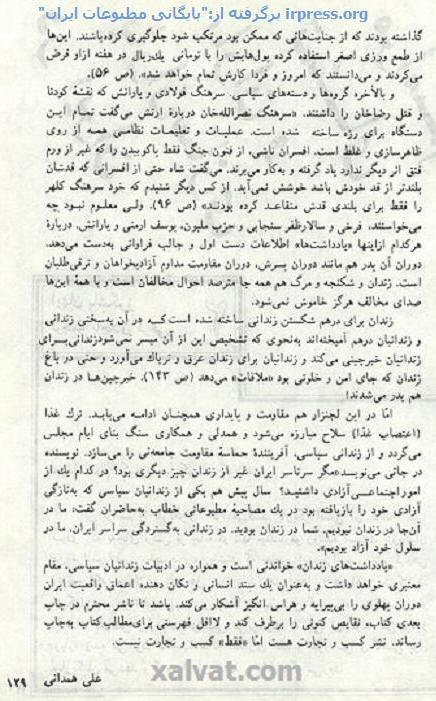 irpress.org برگرفته از:"بایگانی مطبوعات ایران"
گذاشته بودند که از جنایت‌هائی که ممکن بود مرتکب شود جلوگیری کرده‌باشند. این‌ها
از طمع ورزی اصغر استفاده کرده پول‌هایش را با تومانی یك‌ریال در هفته ازاو قرض
می‌کردند و می‌دانستند که امروز و فردا کارش تمام خواهد شد». (ص ۵۶).
و بالأخره گروه‌ها و دسته‌های سیاسی. سرهنگ فولادی و یارانش که نقشهٔ کودتا
و قتل رضاخان را داشتند. «سرهنگ نصراللهخان دربارهٔ ارتش می‌گفت تمام این
دستگاه برای رژه ساخته شده است. عملیات و تعلیمات نظامی همه از روی
ظاهرسازی و غلط است. افسران ناشی، از فنون جنگ فقط پاکوبیدن را که غیر از ورم
فتق اثر دیگر ندارد یاد گرفته و به‌کار می‌برند. می‌گفت شاه حتی از افسرانی که قدشان
بلندتر از قد خودش باشد خوشش نمی‌آید. از کس دیگر شنیدم که خرد سرهنگ کلهر
را فقط برای بلندی قدش متقاعد کرده بودند» (ص ۹۶). ولی معلوم نبود چه
می‌خواستند. فرخی و سالارظفر سنجابی و حزب ملیون، یوسف ارمنی و یارانش. دربارهٔ
هرکدام ازاینها «یادداشت‌ها» اطلاعات دست اول و جالب فراوانی به‌دست می‌دهد.
دوران آن پدر هم مانند دوران پسرش، دوران مقاومت مداوم آزادیخواهان و ترقی‌طلبان
است. زندان و شکنجه و مرگ هم همه جا مترصد احوال مخالفان است و با همهٔ این‌ها
صدای مخالف هرگز خاموش نمی‌شود.
زندان برای درهم شکستن زندانی ساخته شده است که در آن به‌سختی زندانی
و زندانبان درهم آمیخته‌اند به‌نحوی که تشخیص این از آن میسر نمی‌شود. زندانی برای
زندانبان خبرچینی می‌کند و زندانبان برای زندان عرق و تریاك می‌آورد و حتی در باغ
زندان که جای امن و خلوتی بود «ملاقات» می‌دهد (ص ۱۴۳). خبرچین‌ها در زندان
هم پدر می‌شدند!
امّا در این لجنزار هم مقاومت و پایداری همچنان ادامه می‌یابد. ترك غذا
(اعتصاب غذا) سلاح مبارزه می‌شود و همدلی و همکاری سنگ بنای ایام مجلس
می‌گردد و از زندانی سیاسی، آفرینندهٔ حماسهٔ مقاومت جامعه‌ئی را می‌سازد. نویسنده
در جائی می‌نویسد «مگر سرتاسر ایران غیر از زندان چیز دیگری بود؟ در کدام یك از
امور اجتماعی آزادی داشتید؟ سال پیش هم یکی از زندانیان سیاسی که به‌تازگی
آزادی خود را بازیافته بود در یك مصاحبهٔ مطبوعاتی خطاب به‌حاضران گفت: ما در
آن‌جا در زندان نبودیم. شما در زندان بودید، در زندانی به‌گستردگی سراسر ایران. ما در
سلول خود آزاد بودیم».
«یادداشت‌های زندان» خواندنی است و همواره در ادبیات زندانیان سیاسی، مقام
معتبری خواهد داشت و به‌عنوان یك سند انسانی و تکان دهنده اعماق واقعیت ایران
دوران پهلوی را بی‌پیرایه و هراس انگیز آشکار می‌کند. باشد تا ناشر محترم در چاپ
بعدی کتاب، نقایص کنونی را برطرف کند و لااقل فهرستی برای مطالب کتاب به‌چاپ
رساند. نشر کسب و تجارت هست امّا «فقط» کسب و تجارت نیست.
علی همدانی ۱۲۹
xalvat.com